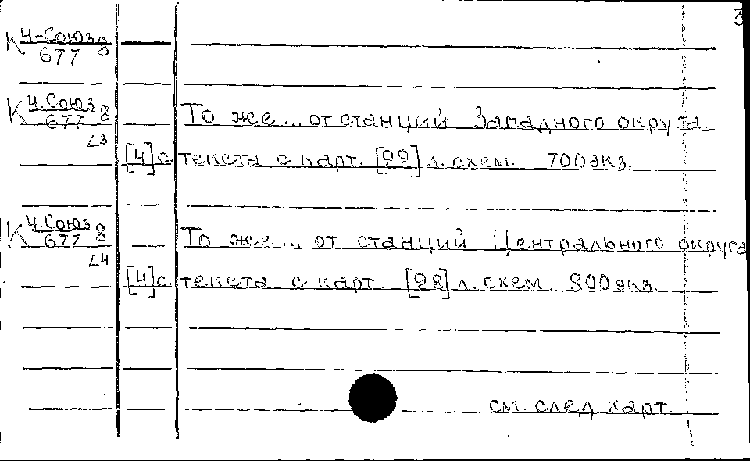 3
К Ч-Союз 8
677
К Ч.Союз 8
677
L3
То же... от станций Западного округа
[4] с. текста с карт. [22] л. схем. 700 экз.
К Ч.Союз 8
677
L4
То же... от станций Центрального округа
[4] с. текста с карт. [28] л. схем. 800 экз.
см. след карт.